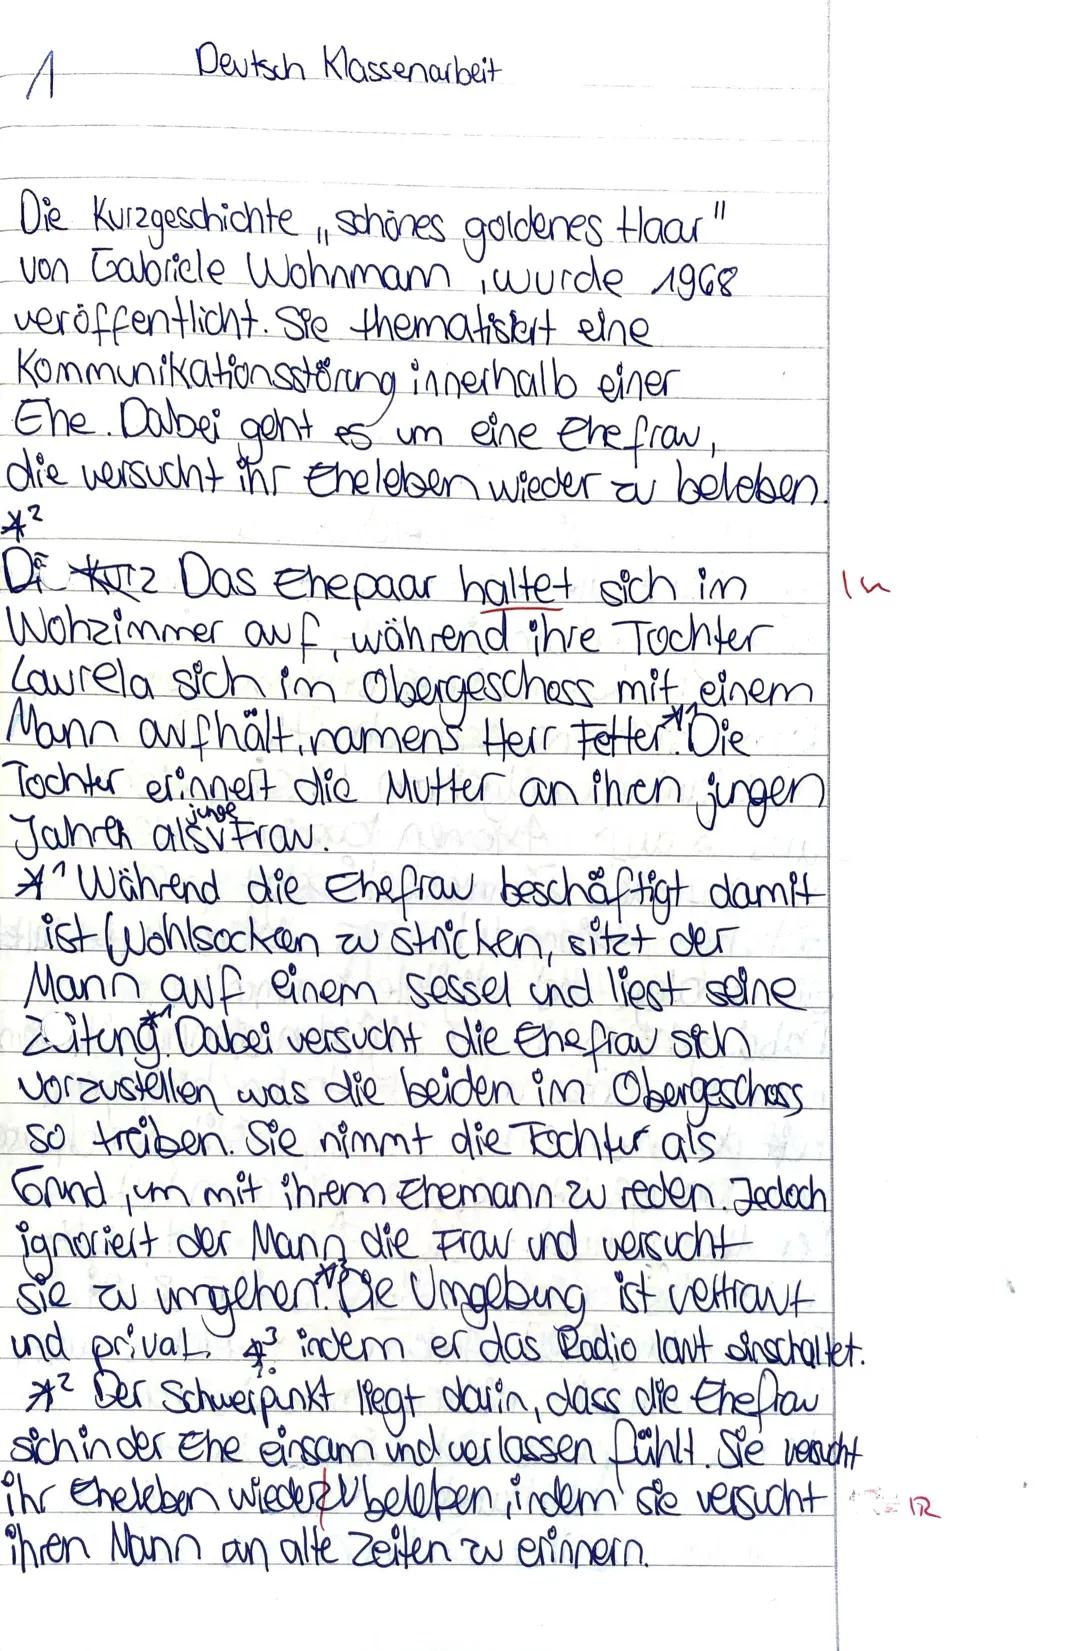 1 Deutsch Klassenarbeit
Die Kurzgeschichte „schönes goldenes Haar"
von Gabriele Wohnmann, wurde 1968
veröffentlicht. Sie thematisiert eine
Kommunikationsstörung innerhalb einer
Ehe. Dabei geht es um eine Ehefrau,
die versucht ihr Eheleben wieder zu beleben.
*2
Das Ehepaar haltet sich im
Wohzimmer auf, während ihre Tochter
Laurela sich im Obergeschoss mit einem
Mann aufhält, namens Herr Fetter.*1 Die
Tochter erinnert die Mutter an ihren jungen
Jahren als junge Frau.
*1 Während die Ehefrau beschäftigt damit
ist Wohlsocken zu stricken, sitzt der
Mann auf einem Sessel und liest seine
Zeitung.*1 Dabei versucht die Ehefrau sich
vorzustellen was die beiden im Obergeschoss
so treiben. Sie nimmt die Tochter als
Grund, um mit ihrem Ehemann zu reden. Jedoch
ignoriert der Mann die Frau und versucht
sie zu umgehen.*3 Die Umgebung ist vertraut
und privat. *3 indem er das Radio laut einschaltet.
*2 Der Schwerpunkt liegt darin, dass die Ehefrau
sich in der Ehe einsam und verlassen fühlt. Sie versucht
ihr Eheleben wieder zu beleben, indem sie versucht
ihren Mann an alte Zeiten zu erinnern.